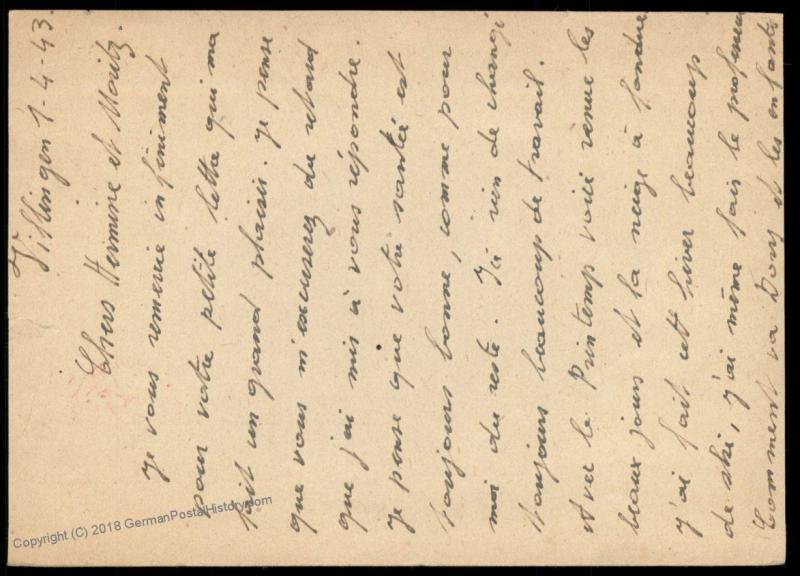 Villingen 1-4-43.
Chers Hermine et Moritz.
Je vous remercie infiniment
pour votre petite lettre qui m'a
fait un grand plaisir. Je pense
que vous m'excuserez du retard
que j'ai mis à vous répondre.
Je pense que votre santée est
toujours bonne, comme pour
moi du reste. Ici rien de changé
toujours beaucoup de travail.
Avec le Printemp voici venue les
beaux jours et la neige à fondue
j'ai fait cet hiver beaucoup
de ski, j'ai même fais le professeur
Comment va Dory et les enfants
Copyright (C) 2018 GermanPostalHistory.com